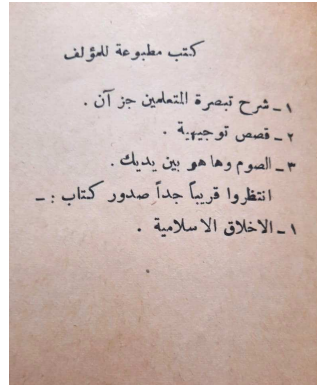 كتب مطبوعة للمؤلف
١ ـ شرح تبصرة المتعلمين جز آن .
٢ ـ قصص توجيهية .
٣ ـ الصوم وها هو بين يديك .
انتظروا قريباً جداً صدور كتاب : ـ
١ ـ الاخلاق الاسلامية .